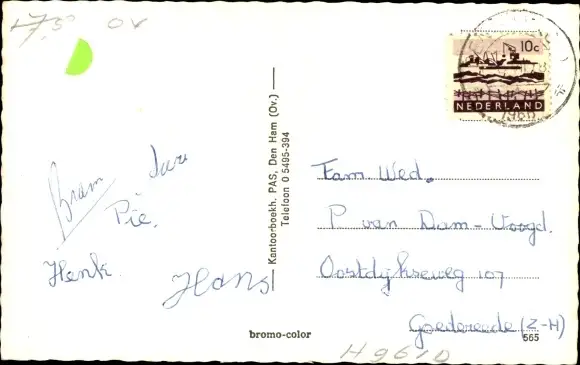 7,50 OV
10c
NEDERLAND
1966
Bram
Pie.
Henk.
Hans
Kantoorboekh. PAS, Den Ham (Ov.)
Telefoon 0 5495-394
Fam Wed.
P van Dam-Voogd.
Oostdijkseweg 107
Goedereede (Z-H)
565
bromo-color
H9610